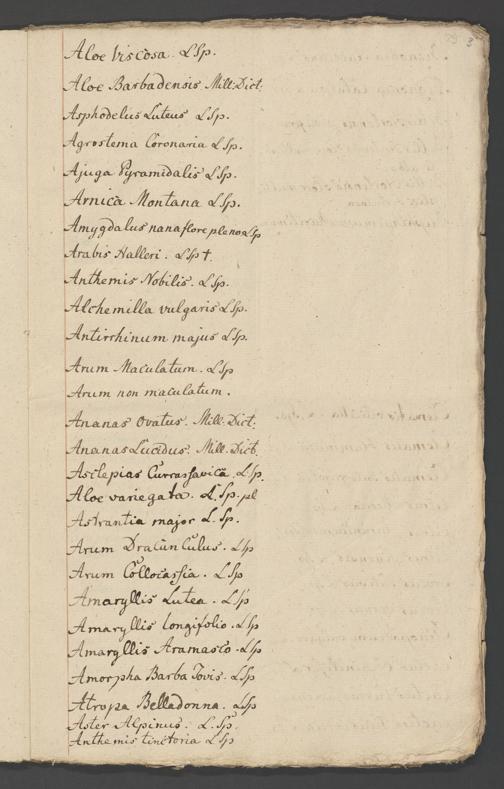 3
Aloe Viscosa. LSp.
Aloe Barbadensis Mill: Dict:
Asphodelus Luteus LSp.
Agrostema Coronaria LSp.
Ajuga Pyramidalis LSp.
Arnica Montana LSp.
Amygdalus nana flore pleno LSp
Arabis Halleri. LSp †.
Anthemis Nobilis. LSp.
Alchemilla vulgaris LSp.
Antirrhinum majus LSp.
Arum Maculatum. LSp
Arum non maculatum.
Ananas Ovatus. Mill: Dict:
Ananas Lucidus. Mill. Dict.
Asclepias Currassavica. L.Sp.
Aloe variegata. L.Sp. pl
Astrantia major L. Sp.
Arum Dracunculus. LSp
Arum Collocassia. LSp
Amaryllis Lutea. LSp
Amaryllis longifolio. LSp
Amaryllis Atamasco. LSp
Amorpha Barba Jovis. LSp
Atropa Belladonna. LSp
Aster Alpinus. L.Sp.
Anthemis tinctoria LSp